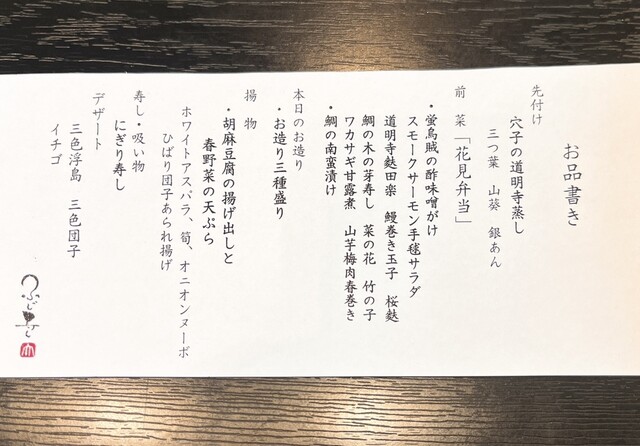 お品書き
先付け
穴子の道明寺蒸し
三つ葉　山葵　銀あん
前　菜　「花見弁当」
・蛍烏賊の酢味噌がけ
スモークサーモン手毬サラダ
道明寺麩田楽　鰻巻き玉子　桜麩
鯛の木の芽寿し　菜の花　竹の子
ワカサギ甘露煮　山芋梅肉春巻き
・鯛の南蛮漬け
本日のお造り
・お造り三種盛り
揚　物
・胡麻豆腐の揚げ出しと
春野菜の天ぷら
ホワイトアスパラ、筍、オニオンヌーボ
ひばり団子あられ揚げ
寿し・吸い物
にぎり寿し
デザート
三色浮島　三色団子
イチゴ